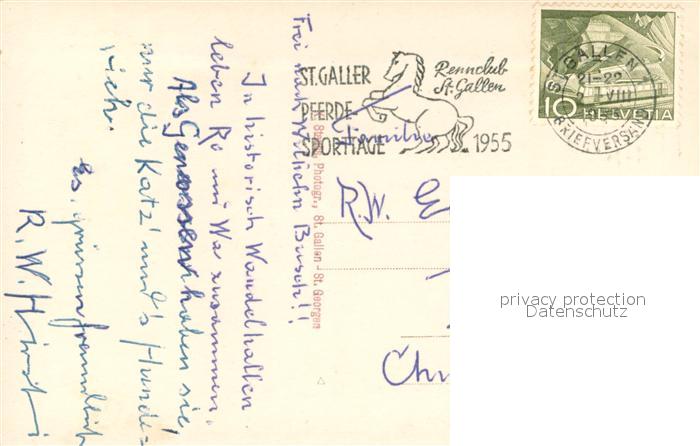 Frei nach Wilhelm Busch!!
In historisch Wandelhallen
leben Ro und Wa zusammen.
Als Genossen haben sie,
nur die Katz' und's Hunde=
vieh.
Es grüssen freundlich
R. W.
ST. GALLER
PFERDE-
SPORTTAGE
Rennclub
St. Gallen
1955
ST. GALLEN
21-22
VIII
BRIEFVERSAND
10 HELVETIA
Photogr., St. Gallen - St. Georgen
Familie
R.W.
privacy protection
Datenschutz